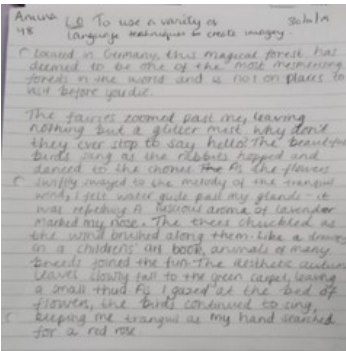 Amina LO To use a variety of
48 language techniques to create imagery.
Located in Germany, this magical forest has
deemed to be one of the most mesmerising
forests in the world and is no1 on places to
visit before you die.
The fairies zoomed past me, leaving
nothing but a glitter mist why don't
they ever stop to say hello? The beautiful
birds sang as the rabbits hopped and
danced to the As the flowers
swiftly swayed to the melody of the tranquil
wind, I felt water glide past my glands - it
was refreshing. A luscious aroma of lavender
marked my nose. The trees chuckled as
the wind brushed along them. Like a drawing
in a childrens' art book, animals of many
breeds joined the fun. The aesthetic autumn
leaves slowly fall to the green carpet, leaving
a small thud. As I gazed at the bed of
flowers, the birds continued to sing,
keeping me tranquil as my hand searched
for a red rose.